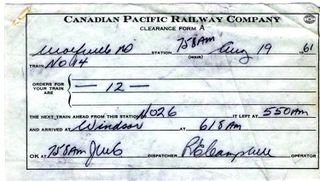 CANADIAN PACIFIC RAILWAY COMPANY
CLEARANCE FORM A
STATION 758AM Aug 19 61
(HOUR)
TRAIN No 14
ORDERS FOR YOUR TRAIN ARE — 12 —
THE NEXT TRAIN AHEAD OF THIS STATION No 26 IT LEFT AT 550AM
AND ARRIVED AT Windsor AT 618AM
OK AT 758AM DISPATCHER OPERATOR